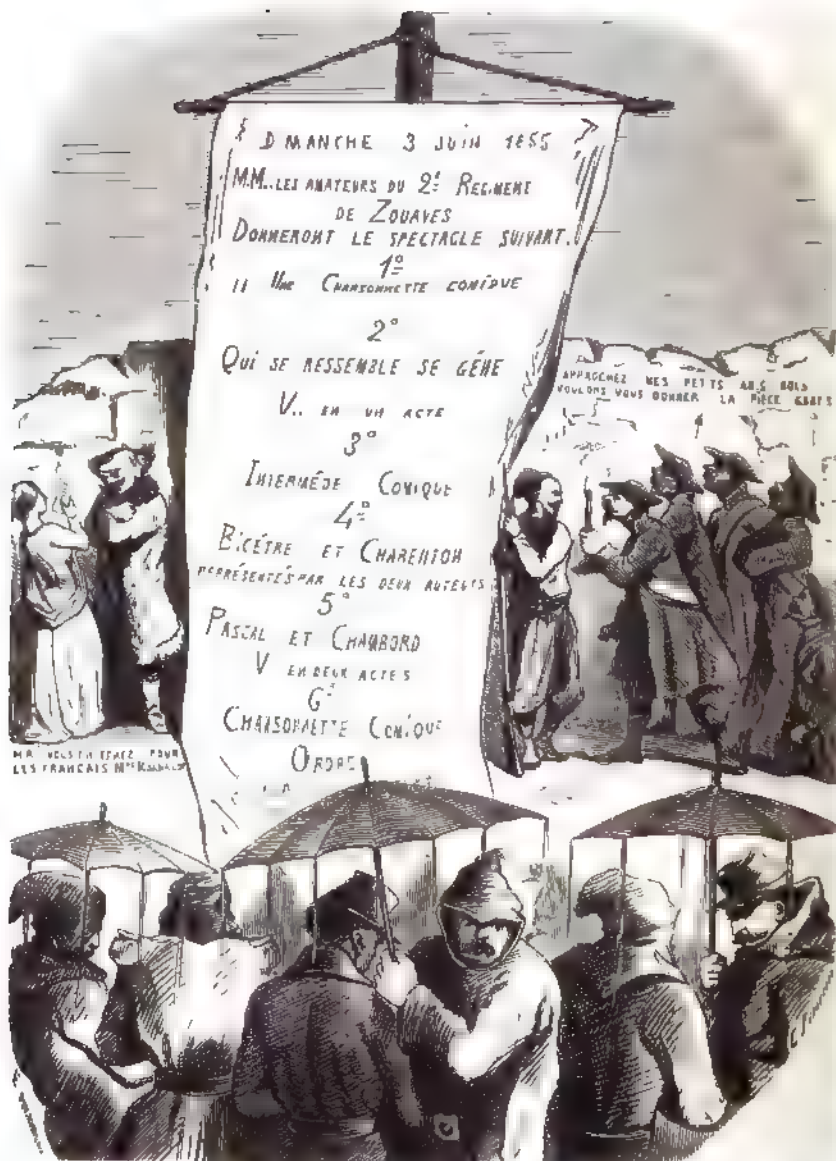 DMANCHE 3 JUIN 1855
M.M. LES AMATEURS DU 2e REGIMENT
DE ZOUAVES
DONNERONT LE SPECTACLE SUIVANT.
1º
UNE CHANSONNETTE COMIQUE
2º
QUI SE RESSEMBLE SE GÊNE
V.. EN UN ACTE
3º
INTERMÉDE COMIQUE
4º
BICÉTRE ET CHARENTON
REPRÉSENTÉS PAR LES DEUX AUTEURS
5º
PASCAL ET CHAMBORD
V EN DEUX ACTES
6º
CHANSONNETTE COMIQUE
ORDRE
APPROCHEZ MES PETITS NOUS
VOULONS VOUS DONNER LA PIÈCE GRATIS
POUR
LES FRANCAIS